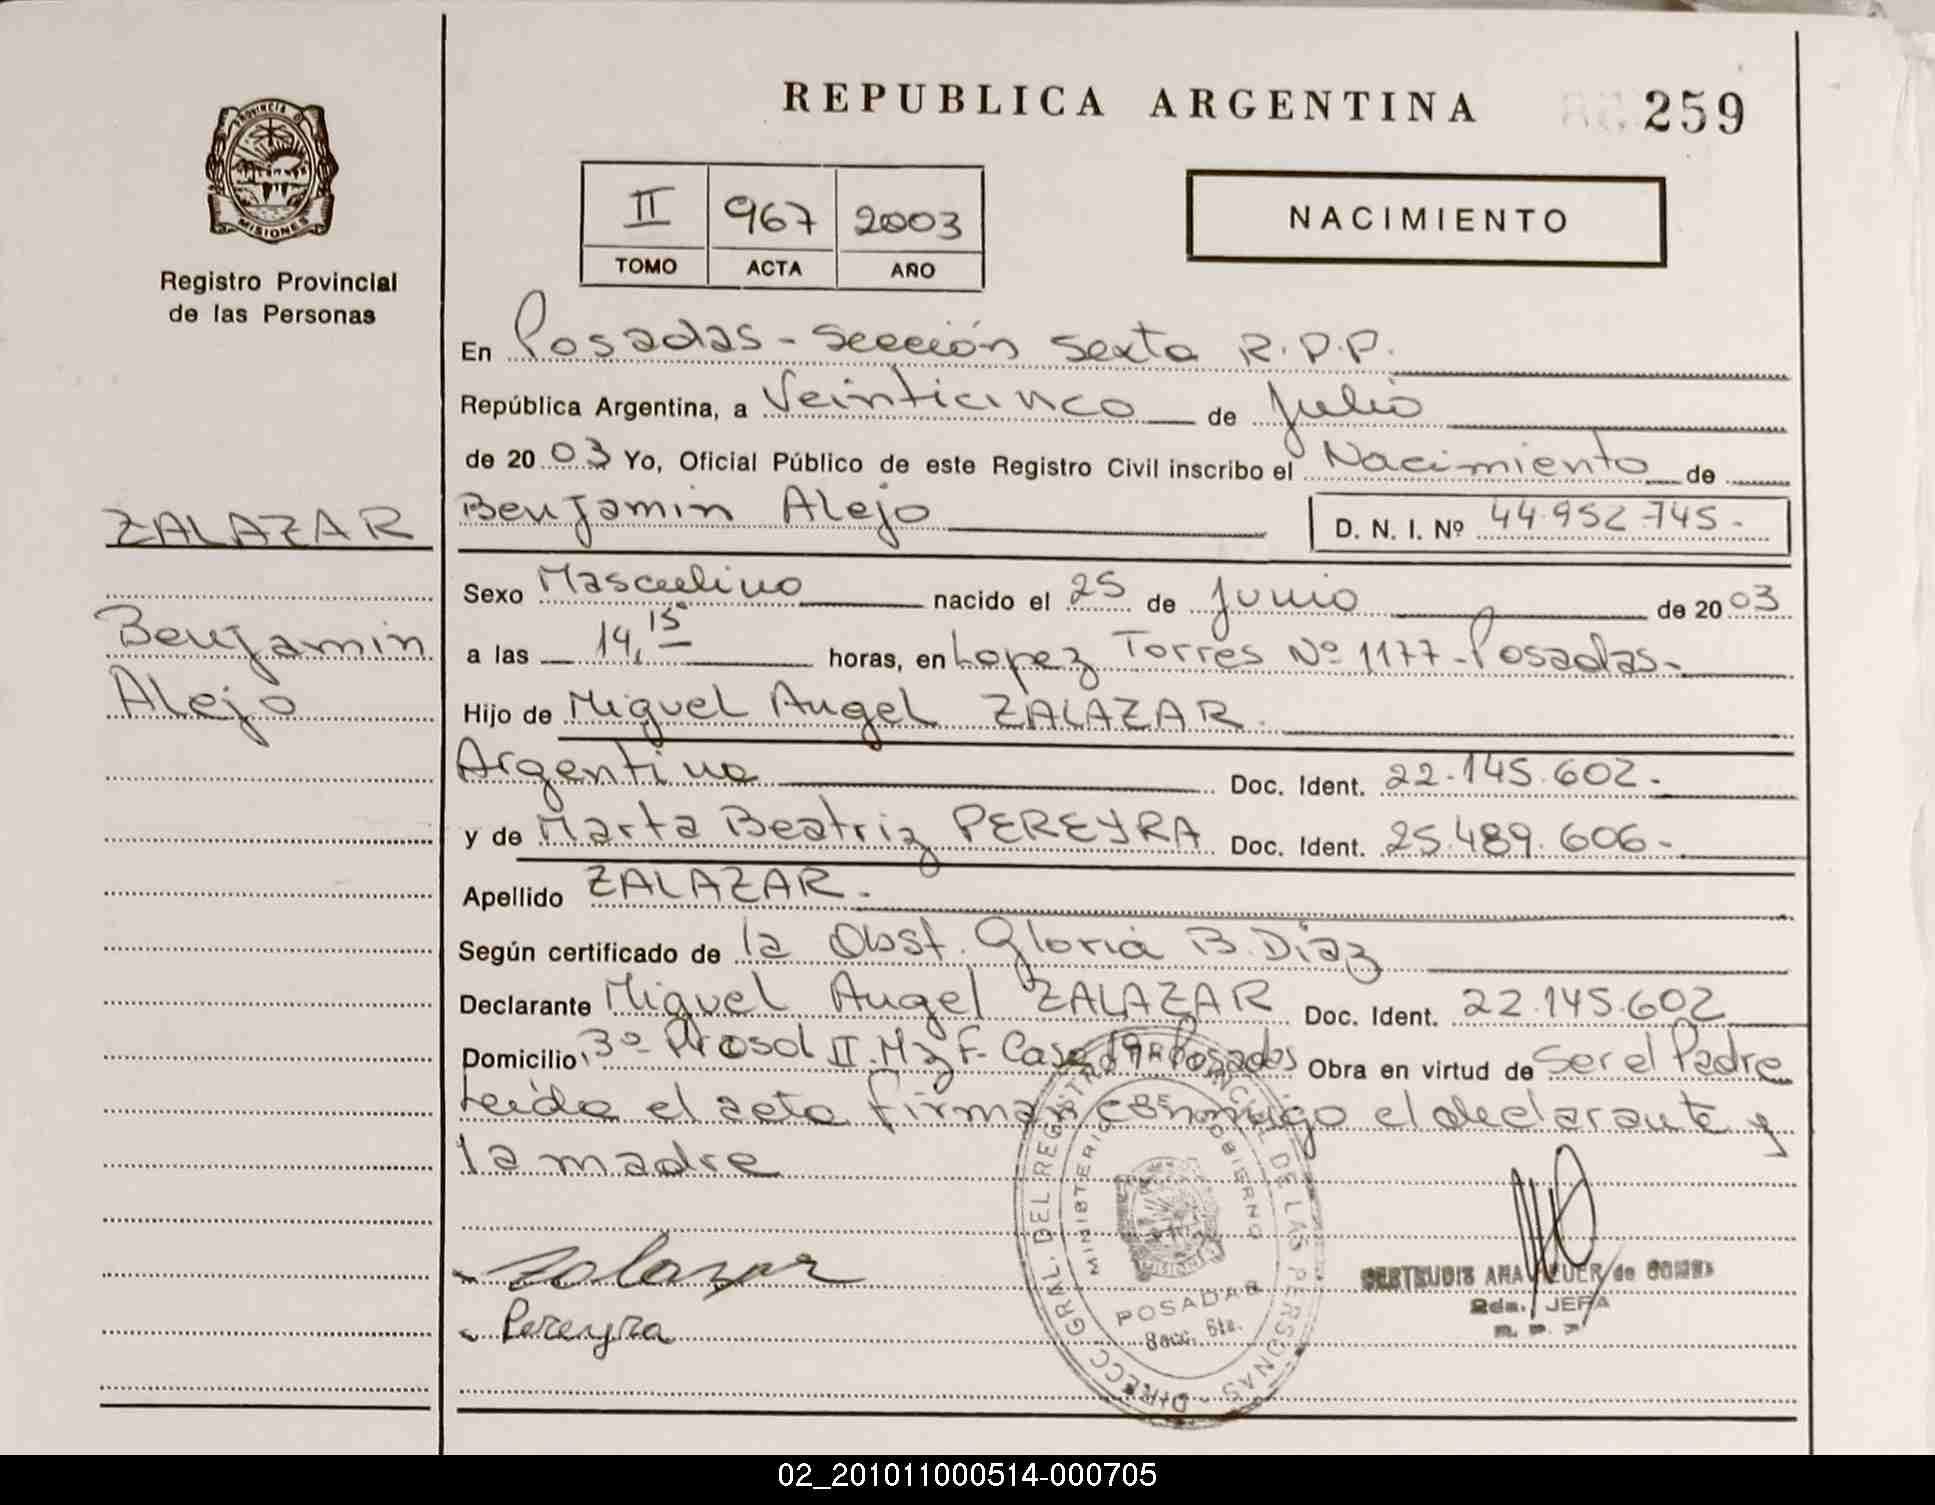 REPUBLICA ARGENTINA
259
PROVINCIA DE
MISIONES
Registro Provincial
de las Personas
II 967 2003
TOMO ACTA AÑO
NACIMIENTO
En Posadas - Sección Sexta R.P.P.
República Argentina, a Veinticinco de Julio
de 2003 Yo, Oficial Público de este Registro Civil inscribo el Nacimiento de
ZALAZAR
Benjamin Alejo
Benjamin Alejo D. N. I. Nº 44.952.745.-
Sexo Masculino nacido el 25 de Junio de 2003
a las 14,15 horas, en Lopez Torres Nº 1177 - Posadas -
Hijo de Miguel Angel ZALAZAR.
Argentino Doc. Ident. 22.145.602.-
y de Marta Beatriz PEREYRA Doc. Ident. 25.489.606.-
Apellido ZALAZAR.-
Según certificado de la Obst. Gloria B. Díaz
Declarante Miguel Angel ZALAZAR Doc. Ident. 22.145.602
Domicilio, 3º Prosol II. Mz F. Casa 19 Posadas Obra en virtud de Ser el Padre
Leída el acta firman conmigo el declarante y
la madre
Zalazar
Pereyra
DIRECC. GRAL. DEL REGISTRO PROVINCIAL DE LAS PERSONAS
MINISTERIO DE GOBIERNO
MISIONES
POSADAS
Secc. 6ta.
GERTRUDIS ANA de GOMEZ
2da. JEFA
R. P. P.
02_201011000514-000705